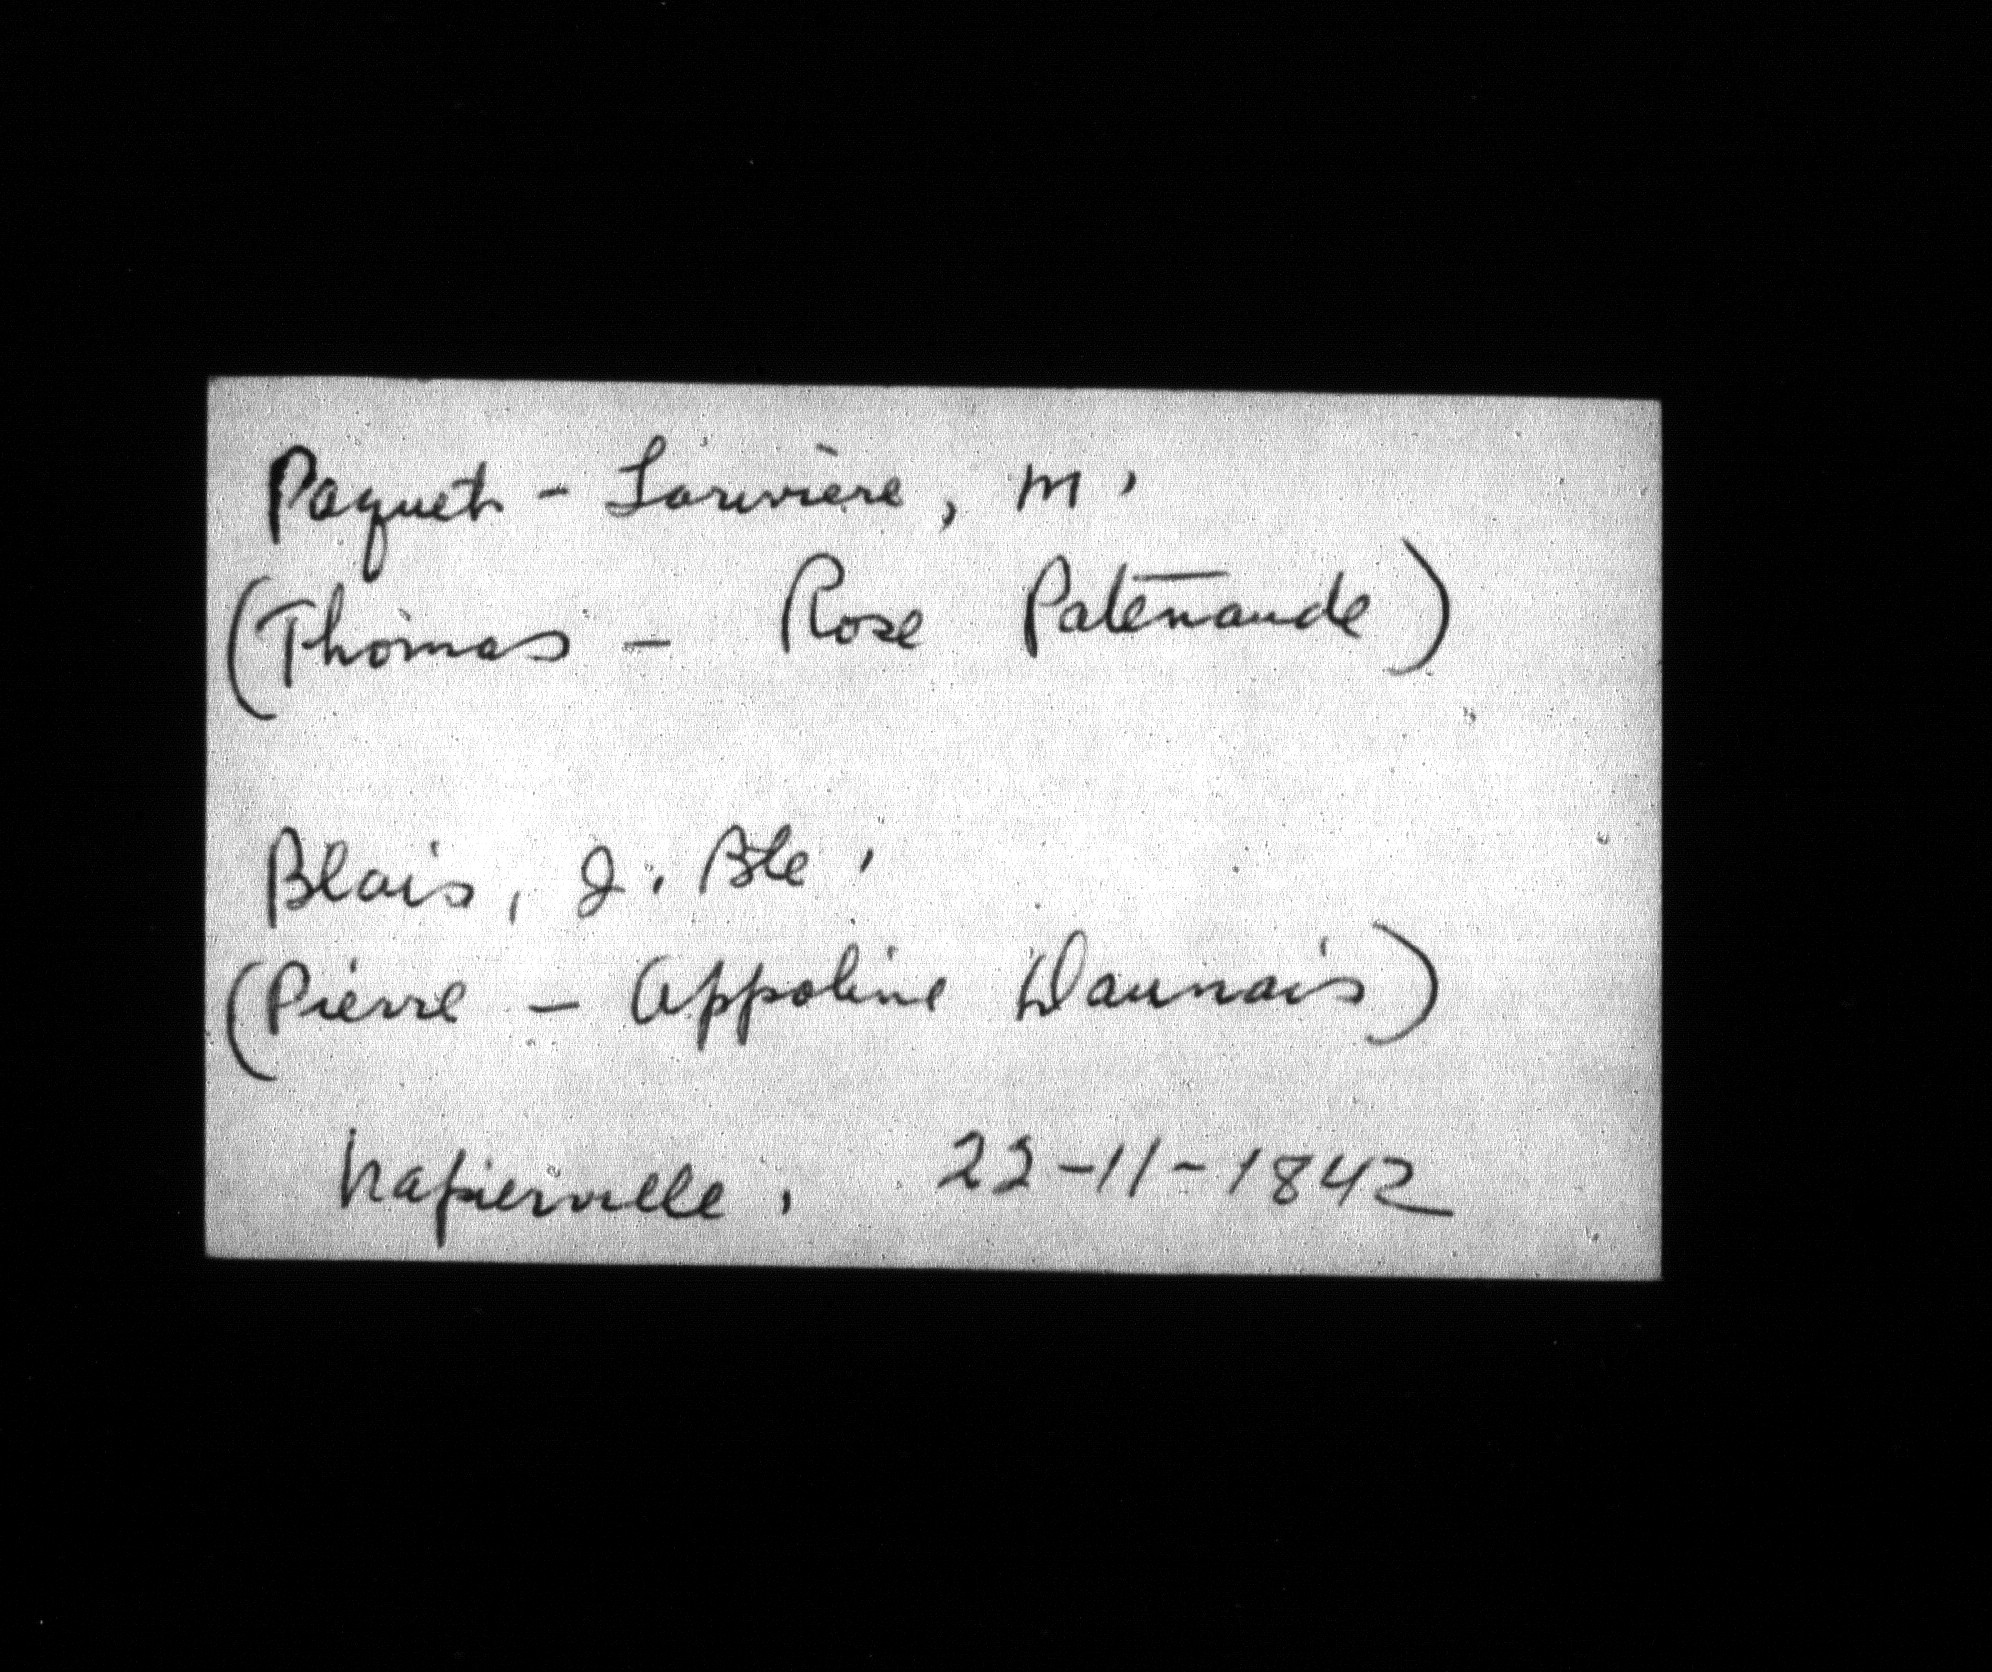 Paquet - Larivière, M.
(Thomas - Rose Patenaude)
Blais, J. Bte.
(Pierre - Appoline Daunais)
Napierville, 22-11-1842